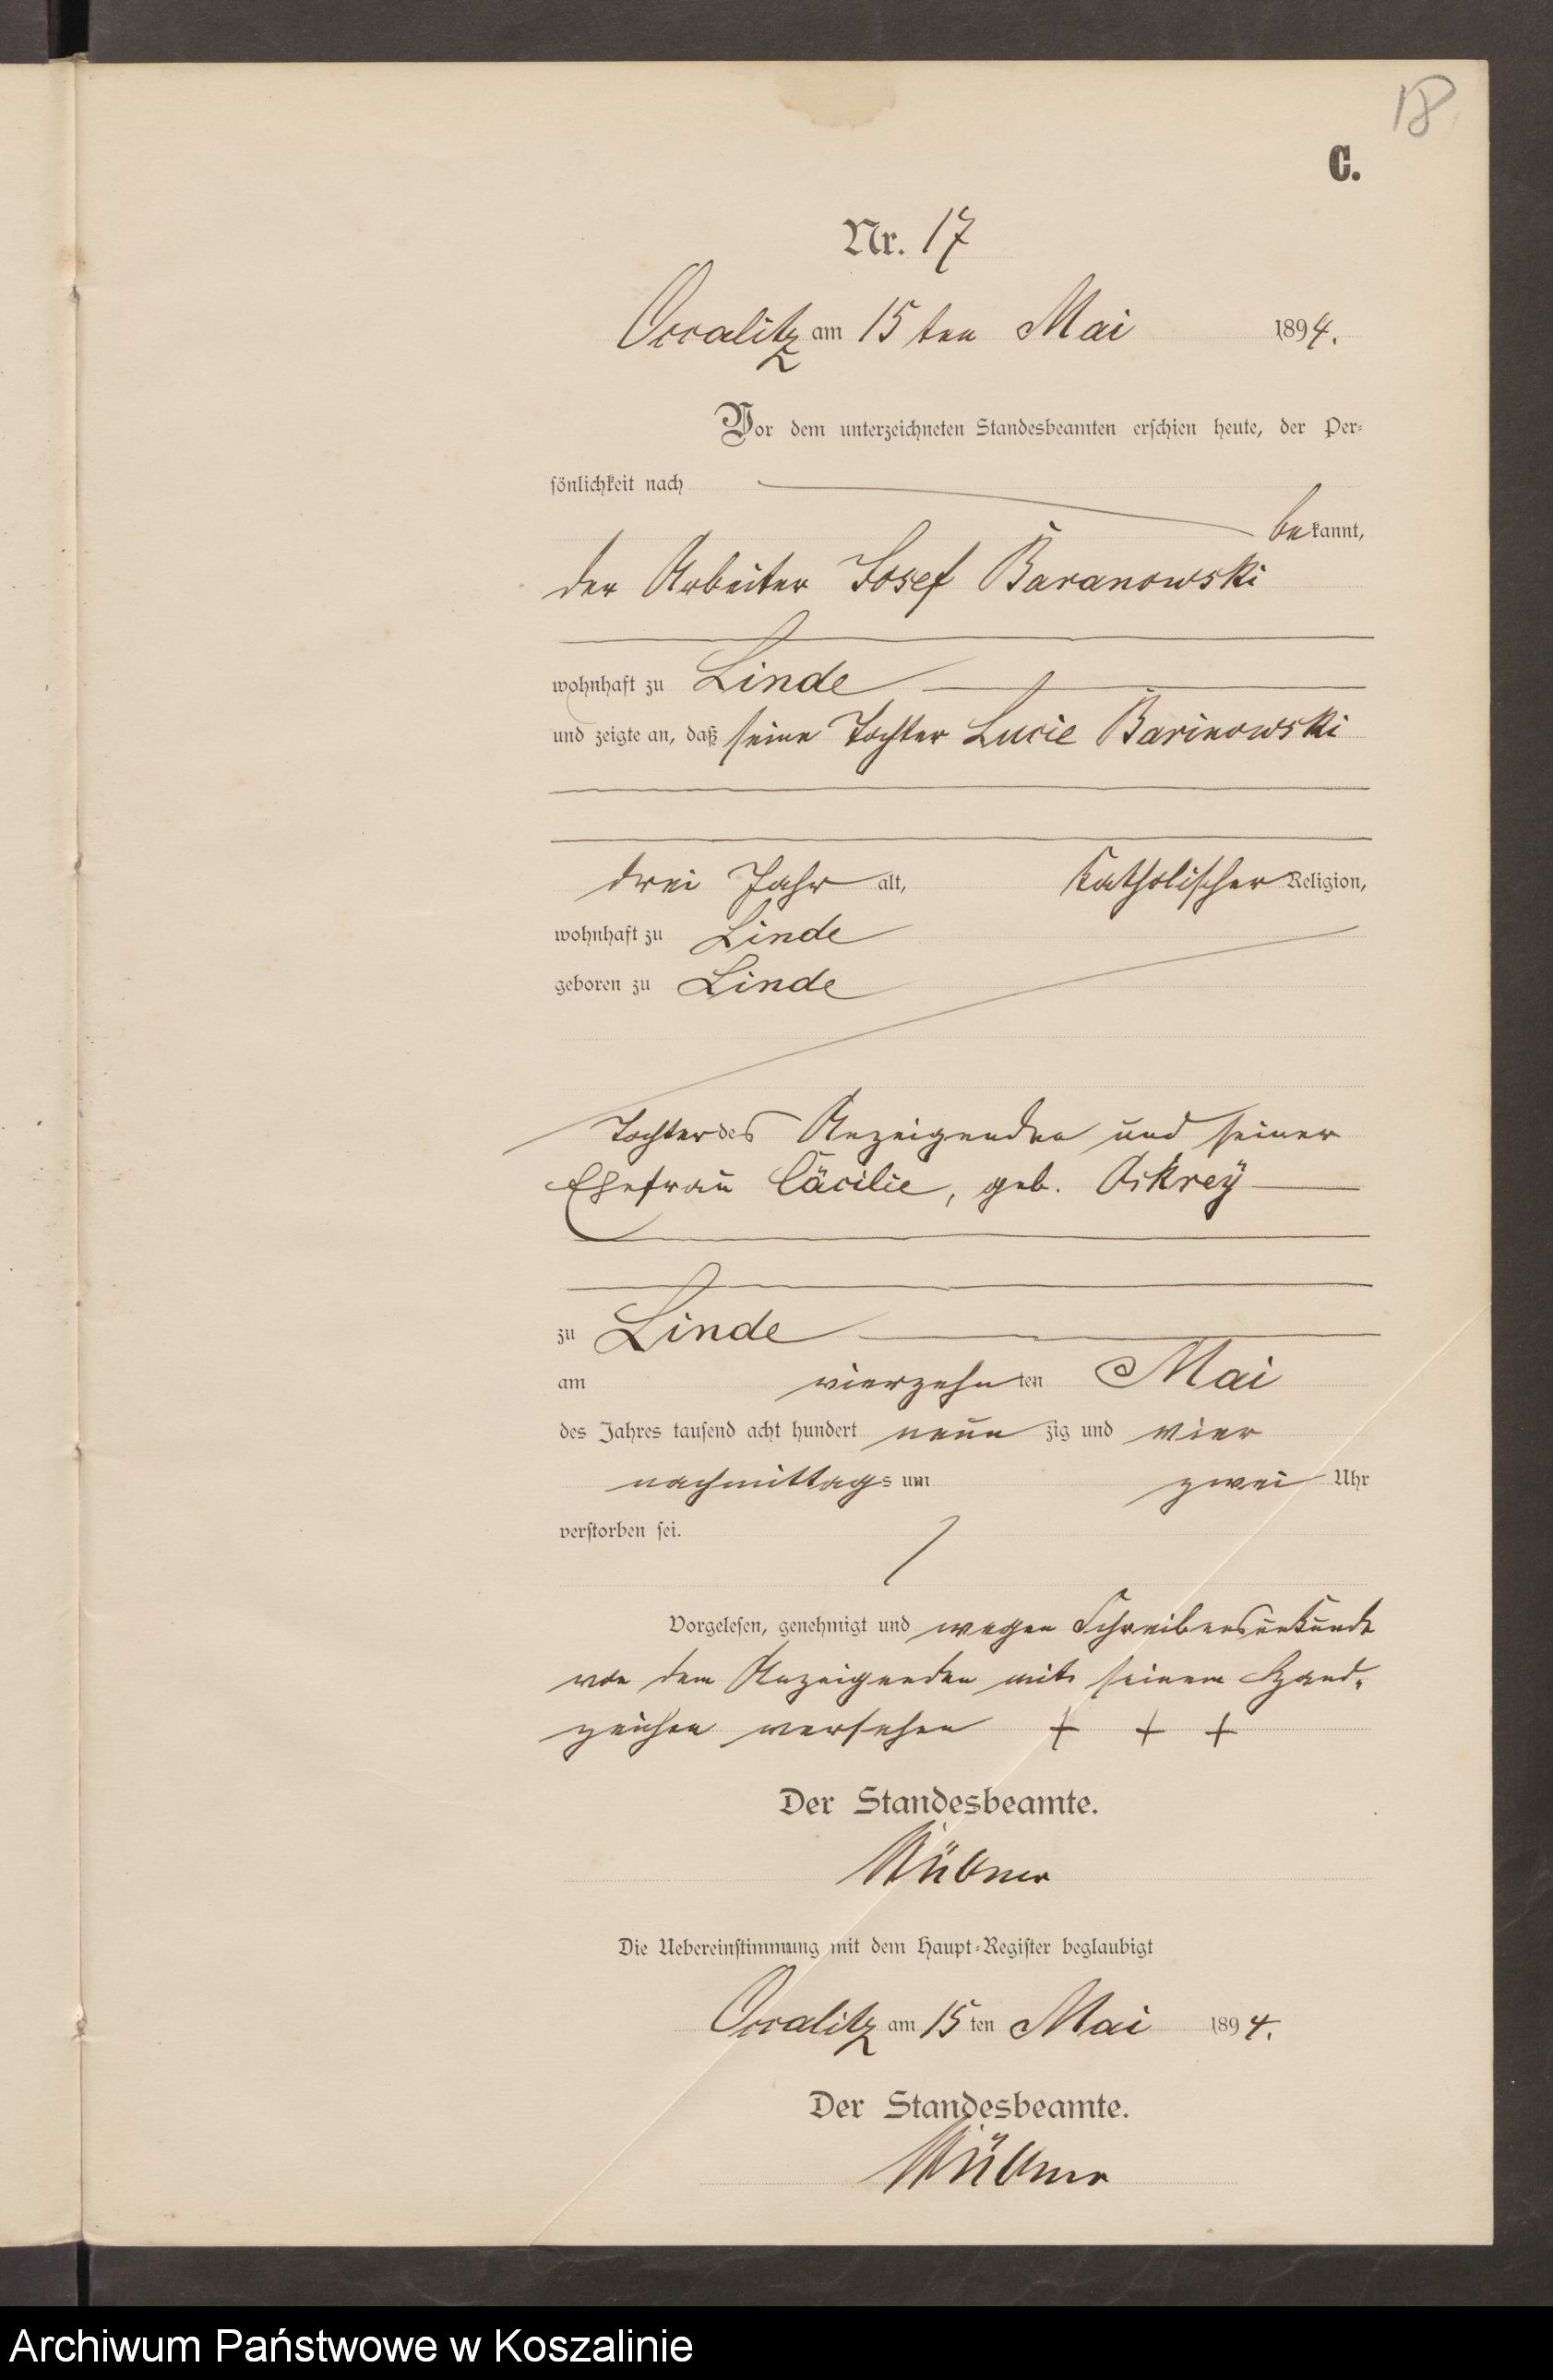 18
C.
Nr. 17
Occalitz am 15 ten Mai 1894.
Vor dem unterzeichneten Standesbeamten erschien heute, der Per-
sönlichkeit nach
bekannt,
der Arbeiter Josef Baranowski
wohnhaft zu Linde
und zeigte an, daß seine Tochter Lucie Barinowski
drei Jahr alt, katholischer Religion,
wohnhaft zu Linde
geboren zu Linde
Tochter des Anzeigenden und seiner
Ehefrau Cäcilie, geb.
zu Linde
am vierzehnten Mai
des Jahres tausend acht hundert neunzig und vier
nachmittags um zwei Uhr
verstorben sei.
Vorgelesen, genehmigt und wegen Schreibensunkunde
von dem Anzeigenden mit seinem Hand-
zeichen versehen + + +
Der Standesbeamte.
Die Uebereinstimmung mit dem Haupt-Register beglaubigt
Occalitz am 15 ten Mai 1894.
Der Standesbeamte.
Archiwum Państwowe w Koszalinie